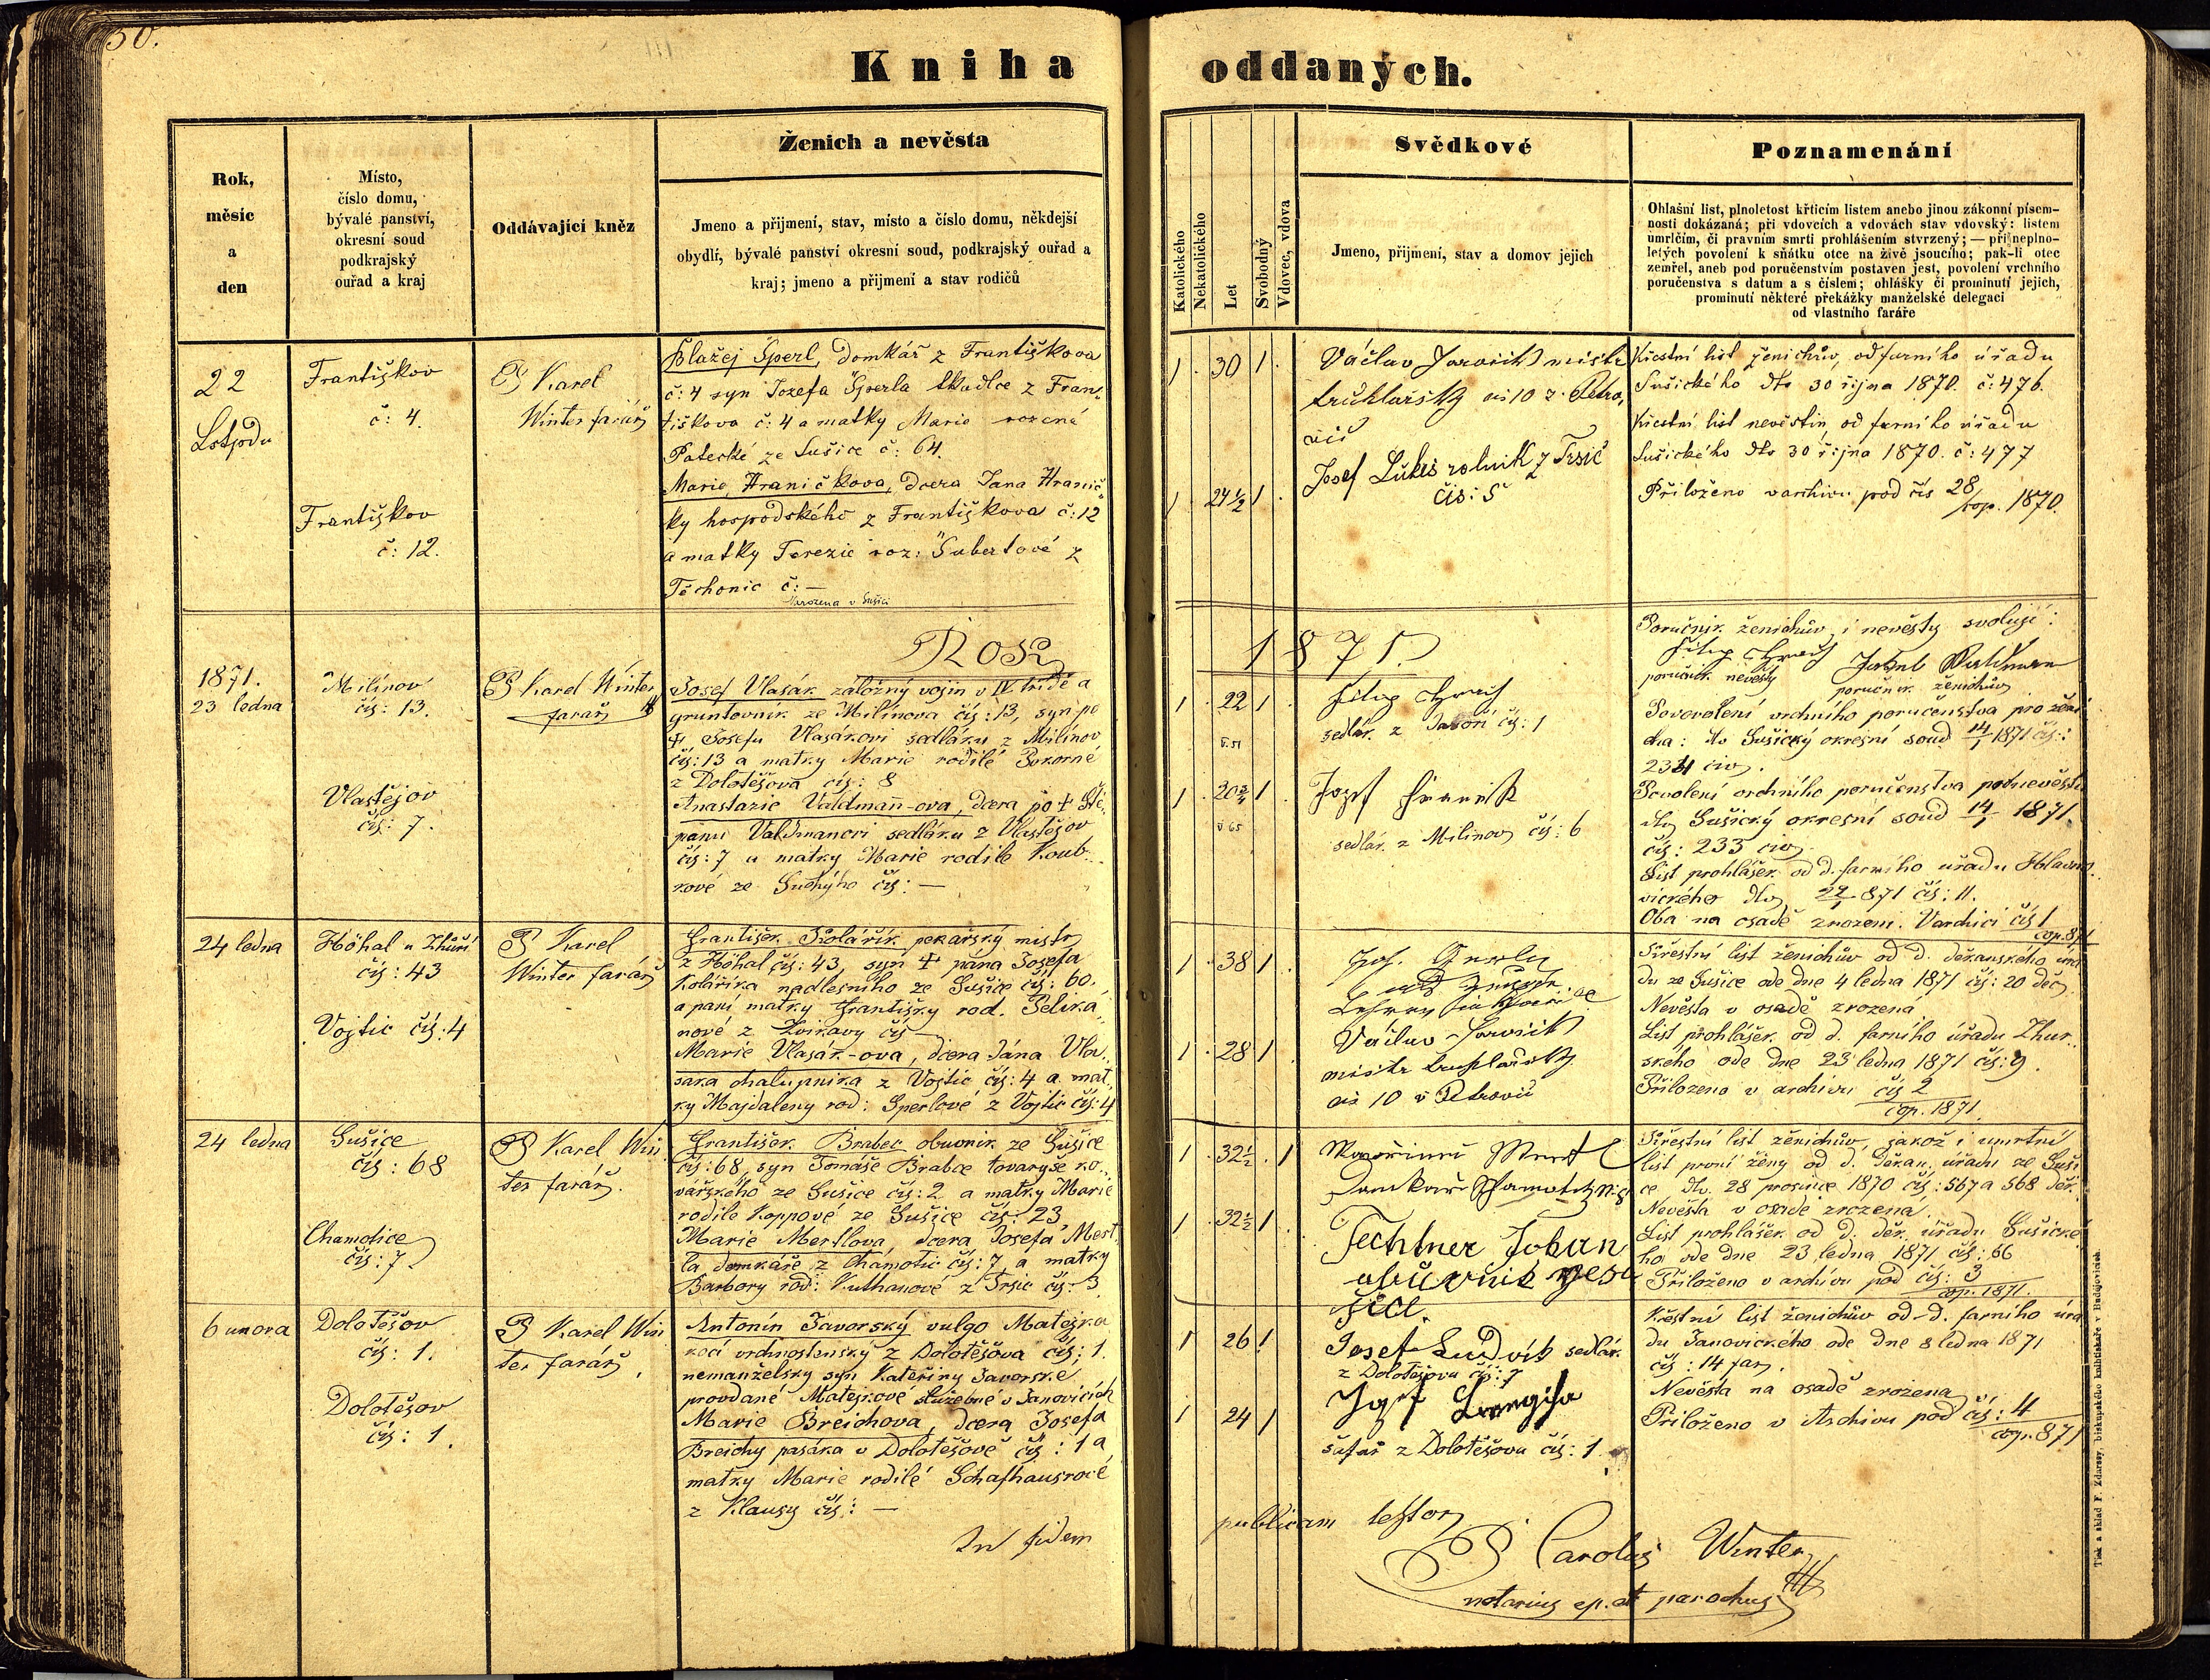 50.
Kniha oddaných.
Rok,
měsíc
a
den
Místo,
číslo domu,
bývalé panství,
okresní soud
podkrajský
ouřad a kraj
Oddávající kněz
Ženich a nevěsta
Jmeno a přijmení, stav, místo a číslo domu, někdejší
obydlí, bývalé panství okresní soud, podkrajský ouřad a
kraj; jmeno a přijmení a stav rodičů
Katolického
Nekatolického
Let
Svobodný
Vdovec, vdova
Svědkové
Jmeno, přijmení, stav a domov jejich
Poznamenání
Ohlašní list, plnoletost křticím listem anebo jinou zákonní písem-
nosti dokázaná; při vdovcích a vdovách stav vdovský: listem
umrlčím, či pravním smrti prohlášením stvrzený; — při neplno-
letých povolení k sňátku otce na živě jsoucího; pak-li otec
zemřel, aneb pod poručenstvím postaven jest, povolení vrchního
poručenstva s datum a s číslem; ohlášky či prominutí jejich,
prominutí některé překážky manželské delegací
od vlastního faráře
22
Františkov
č: 4.
P Karel
Winter farář
Blažej Šperl, domkář z Františkova
č: 4 syn Jozefa Šperla tkadlce z Fran-
tiškova č: 4 a matky Marie rozená
Patecké ze Sušice č: 64.
Františkov
č: 12.
Marie Hraničkova, dcera Jana Hranič-
ky hospodského z Františkova č: 12
a matky Terezie roz: Šubertové z
Těchonic č: —
Narozena v Sušici
1 30 1
Václav Javořík mistr
truhlářský čís 10 z Petro-
vic
1 24½ 1
Josef Lukeš rolník z Trsic
čís: 5
Křestní list ženichův, od farního úřadu
Sušického dto 30 října 1870. č: 476.
Křestní list nevěstin od farního úřadu
Sušického dto 30 října 1870. č: 477
Přiloženo v archivu pod čís 28
/cop. 1870.
Rok 1871.
1871.
23 ledna
Milínov
čís: 13.
P Karel Winter
farář
Josef Vlasák záložný vojín v IV třídě a
gruntovník ze Milínova čís: 13, syn po
† Josefu Vlasákovi sedláku z Milínov
čís: 13 a matky Marie rodilé Pokorné
z Dolotěšova čís: 8
Vlastějov
čís: 7.
Anastazie Valdmann-ova, dcera po † Ště-
pánu Valdmanovi sedláku z Vlastějov
čís: 7 a matky Marie rodilé Koub-
kové ze Suchýho čís: —
1 22 1
sedlák z Javoří čís: 1
1 20¾ 1
sedlák z Milínov čís: 6
Poručník ženichův i nevěsty svolují:
poručník nevěsty
Jakub Valdman
poručník ženichův
Povolení vrchního poručenstva pro ženi-
cha: dto Sušický okresní soud 14/1 1871 čís:
Povolení vrchního poručenstva pro nevěstu
dto Sušický okresní soud 14/1 1871.
čís: 233 civ.
List prohlášek od d. farního úřadu Hlavňo-
vického dto 22/1 871 čís: 11.
Oba na osadě zrozeni. V archivu čís 1
cop. 871
24 ledna
Höhal u Zhůří
čís: 43
P Karel
Winter farář
František Kolářík pekařský mistr
z Höhal čís: 43, syn † pana Josefa
Koláříka nadlesního ze Sušice čís: 60.
a paní matky Františky rod. Pelika-
nové z Zvíkavy čís —
Vojtic čís: 4
Marie Vlasák-ova, dcera Jána Vla-
sáka chalupníka z Vojtic čís: 4 a mat-
ky Majdaleny rod: Šperlové z Vojtic čís: 4
1 38 1
1 28 1
Václav Javořík
mistr truhlářský
čís 10 v Petrovic
Křestní list ženichův od d. děkanského úřa-
du ze Sušice ode dne 4 ledna 1871 čís: 20 děk.
Nevěsta v osadě zrozená
List prohlášek od d. farního úřadu Zhur-
ského ode dne 23 ledna 1871 čís: 9.
Přiloženo v archivu čís 2
cop. 1871.
24 ledna
Sušice
čís: 68
P Karel Win
ter farář.
František Brabec obuvník ze Sušice
čís: 68, syn Tomáše Brabce tovaryše ko-
vářského ze Sušice čís: 2 a matky Marie
rodilé Koppové ze Sušice čís: 23,
Chamotice
čís: 7.
Marie Mertlová, dcera Josefa Mert-
la domkáře z Chamotic čís: 7 a matky
Barbory rod: Kuthanové z Trsic čís: 3.
1 32½ 1
1 32½ 1
Techtner Johan
obuvnik
Křestní list ženichův, jakož i umrtní
list první ženy od d. děkan. úřadu ze Suši-
ce dto. 28 prosince 1870 čís: 567 a 568 děk.
Nevěsta v osadě zrozena.
List prohlášek od d. děk. úřadu Sušické-
ho ode dne 23 ledna 1871 čís: 66
Přiloženo v archivu pod čís: 3
cop. 1871.
6 unora
Dolotěšov
čís: 1.
P Karel Win
ter farář,
Antonín Javorský vulgo Matějka
kočí vrchnostenský z Dolotěšova čís: 1.
nemanželský syn Kateřiny Javorské
provdané Matejkové služebné v Janovicích
Dolotěšov
čís: 1.
Marie Breichova, dcera Josefa
Breichy pasáka v Dolotěšově čís: 1 a
matky Marie rodilé Schafhausrové
z Klausy čís: —
1 26 1
Josef Ludvík sedlák
z Dolotěšova čís: 7
1 24 1
šafář z Dolotěšova čís: 1.
Křestní list ženichův od d. farního úřa-
du Janovického ode dne 8 ledna 1871
čís: 14 far.
Nevěsta na osadě zrozena
Přiloženo v Archivu pod čís: 4
cop. 871
In fidem publicam testor
P Carolus Winter
notarius ep. et parochus
Tisk a sklad F. Zdarssy, biskupského knihtiskaře v Budějovicích.